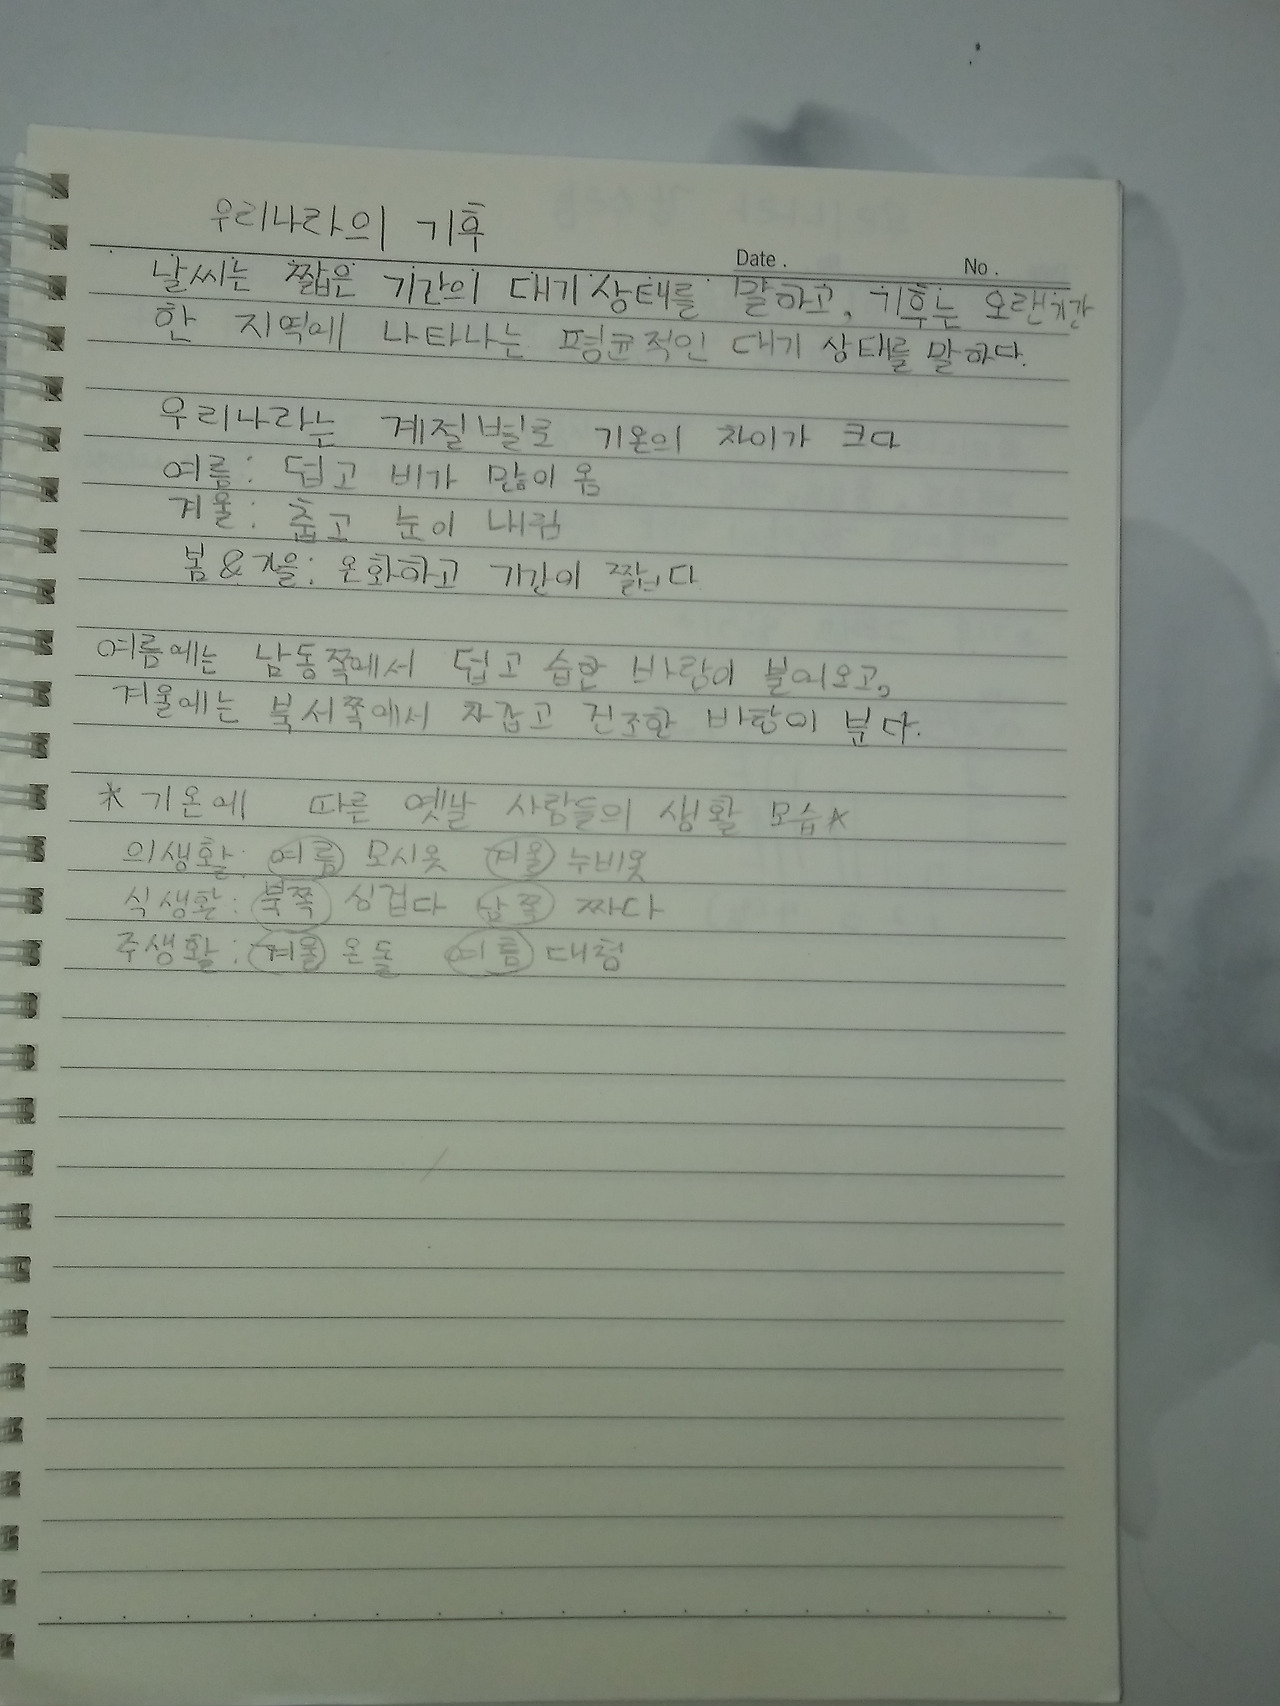 우리나라의 기후
Date . No .
날씨는 짧은 기간의 대기 상태를 말하고, 기후는 오랜기간
한 지역에 나타나는 평균적인 대기 상태를 말하다.
우리나라는 계절별로 기온의 차이가 크다
여름: 덥고 비가 많이 옴
겨울: 춥고 눈이 내림
봄&가을: 온화하고 기간이 짧다
여름에는 남동쪽에서 덥고 습한 바람이 불어오고,
겨울에는 북서쪽에서 차갑고 건조한 바람이 분다.
* 기온에 따른 옛날 사람들의 생활 모습*
의생활: 여름 모시옷 겨울 누비옷
식생활: 북쪽 싱겁다 남쪽 짜다
주생활: 겨울 온돌 여름 대청